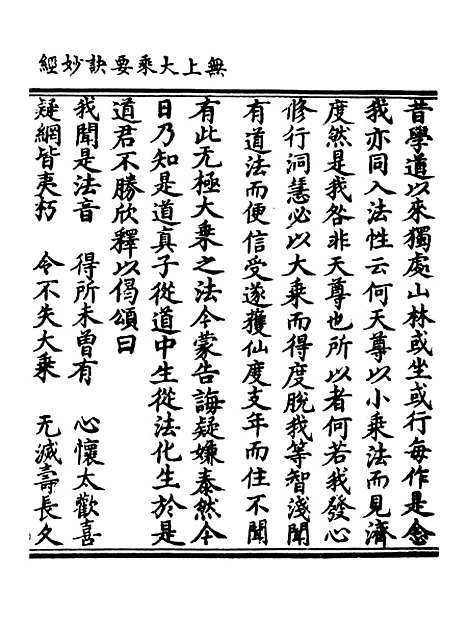 無上大乘要訣妙經
昔學道以來獨處山林或坐或行每作是念
我亦同入法性云何天尊以小乘法而見濟
度然是我咎非天尊也所以者何若我發心
修行洞慧必以大乘而得度脫我等智淺聞
有道法而便信受遂獲仙度支年而住不聞
有此无極大乘之法今蒙告誨疑嫌泰然今
日乃知是道真子從道中生從法化生於是
道君不勝欣釋以偈頌曰
我聞是法音　得所未曾有　心懷太歡喜
疑網皆夷朽　令不失大乘　无滅壽長久